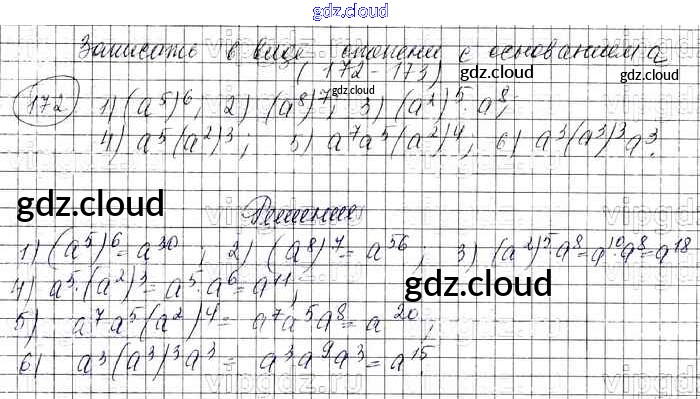 gdz.cloud
Записать в виде степени с основанием a
(172-173) gdz.cloud
gdz.cloud gdz.cloud
172 1) (a⁵)⁶, 2) (a⁸)⁷, 3) (a²)⁵·a⁸;
4) a⁵(a²)³; 5) a⁷a⁵(a²)⁴; 6) a³(a³)³a³.
gdz.cloud gdz.cloud
Решение
1) (a⁵)⁶=a³⁰, 2) (a⁸)⁷=a⁵⁶; 3) (a²)⁵·a⁸=a¹⁰·a⁸=a¹⁸
4) a⁵·(a²)³=a⁵·a⁶=a¹¹;
gdz.cloud
5) a⁷a⁵(a²)⁴= a⁷a⁵a⁸=a²⁰;
6) a³(a³)³a³= a³a⁹a³=a¹⁵